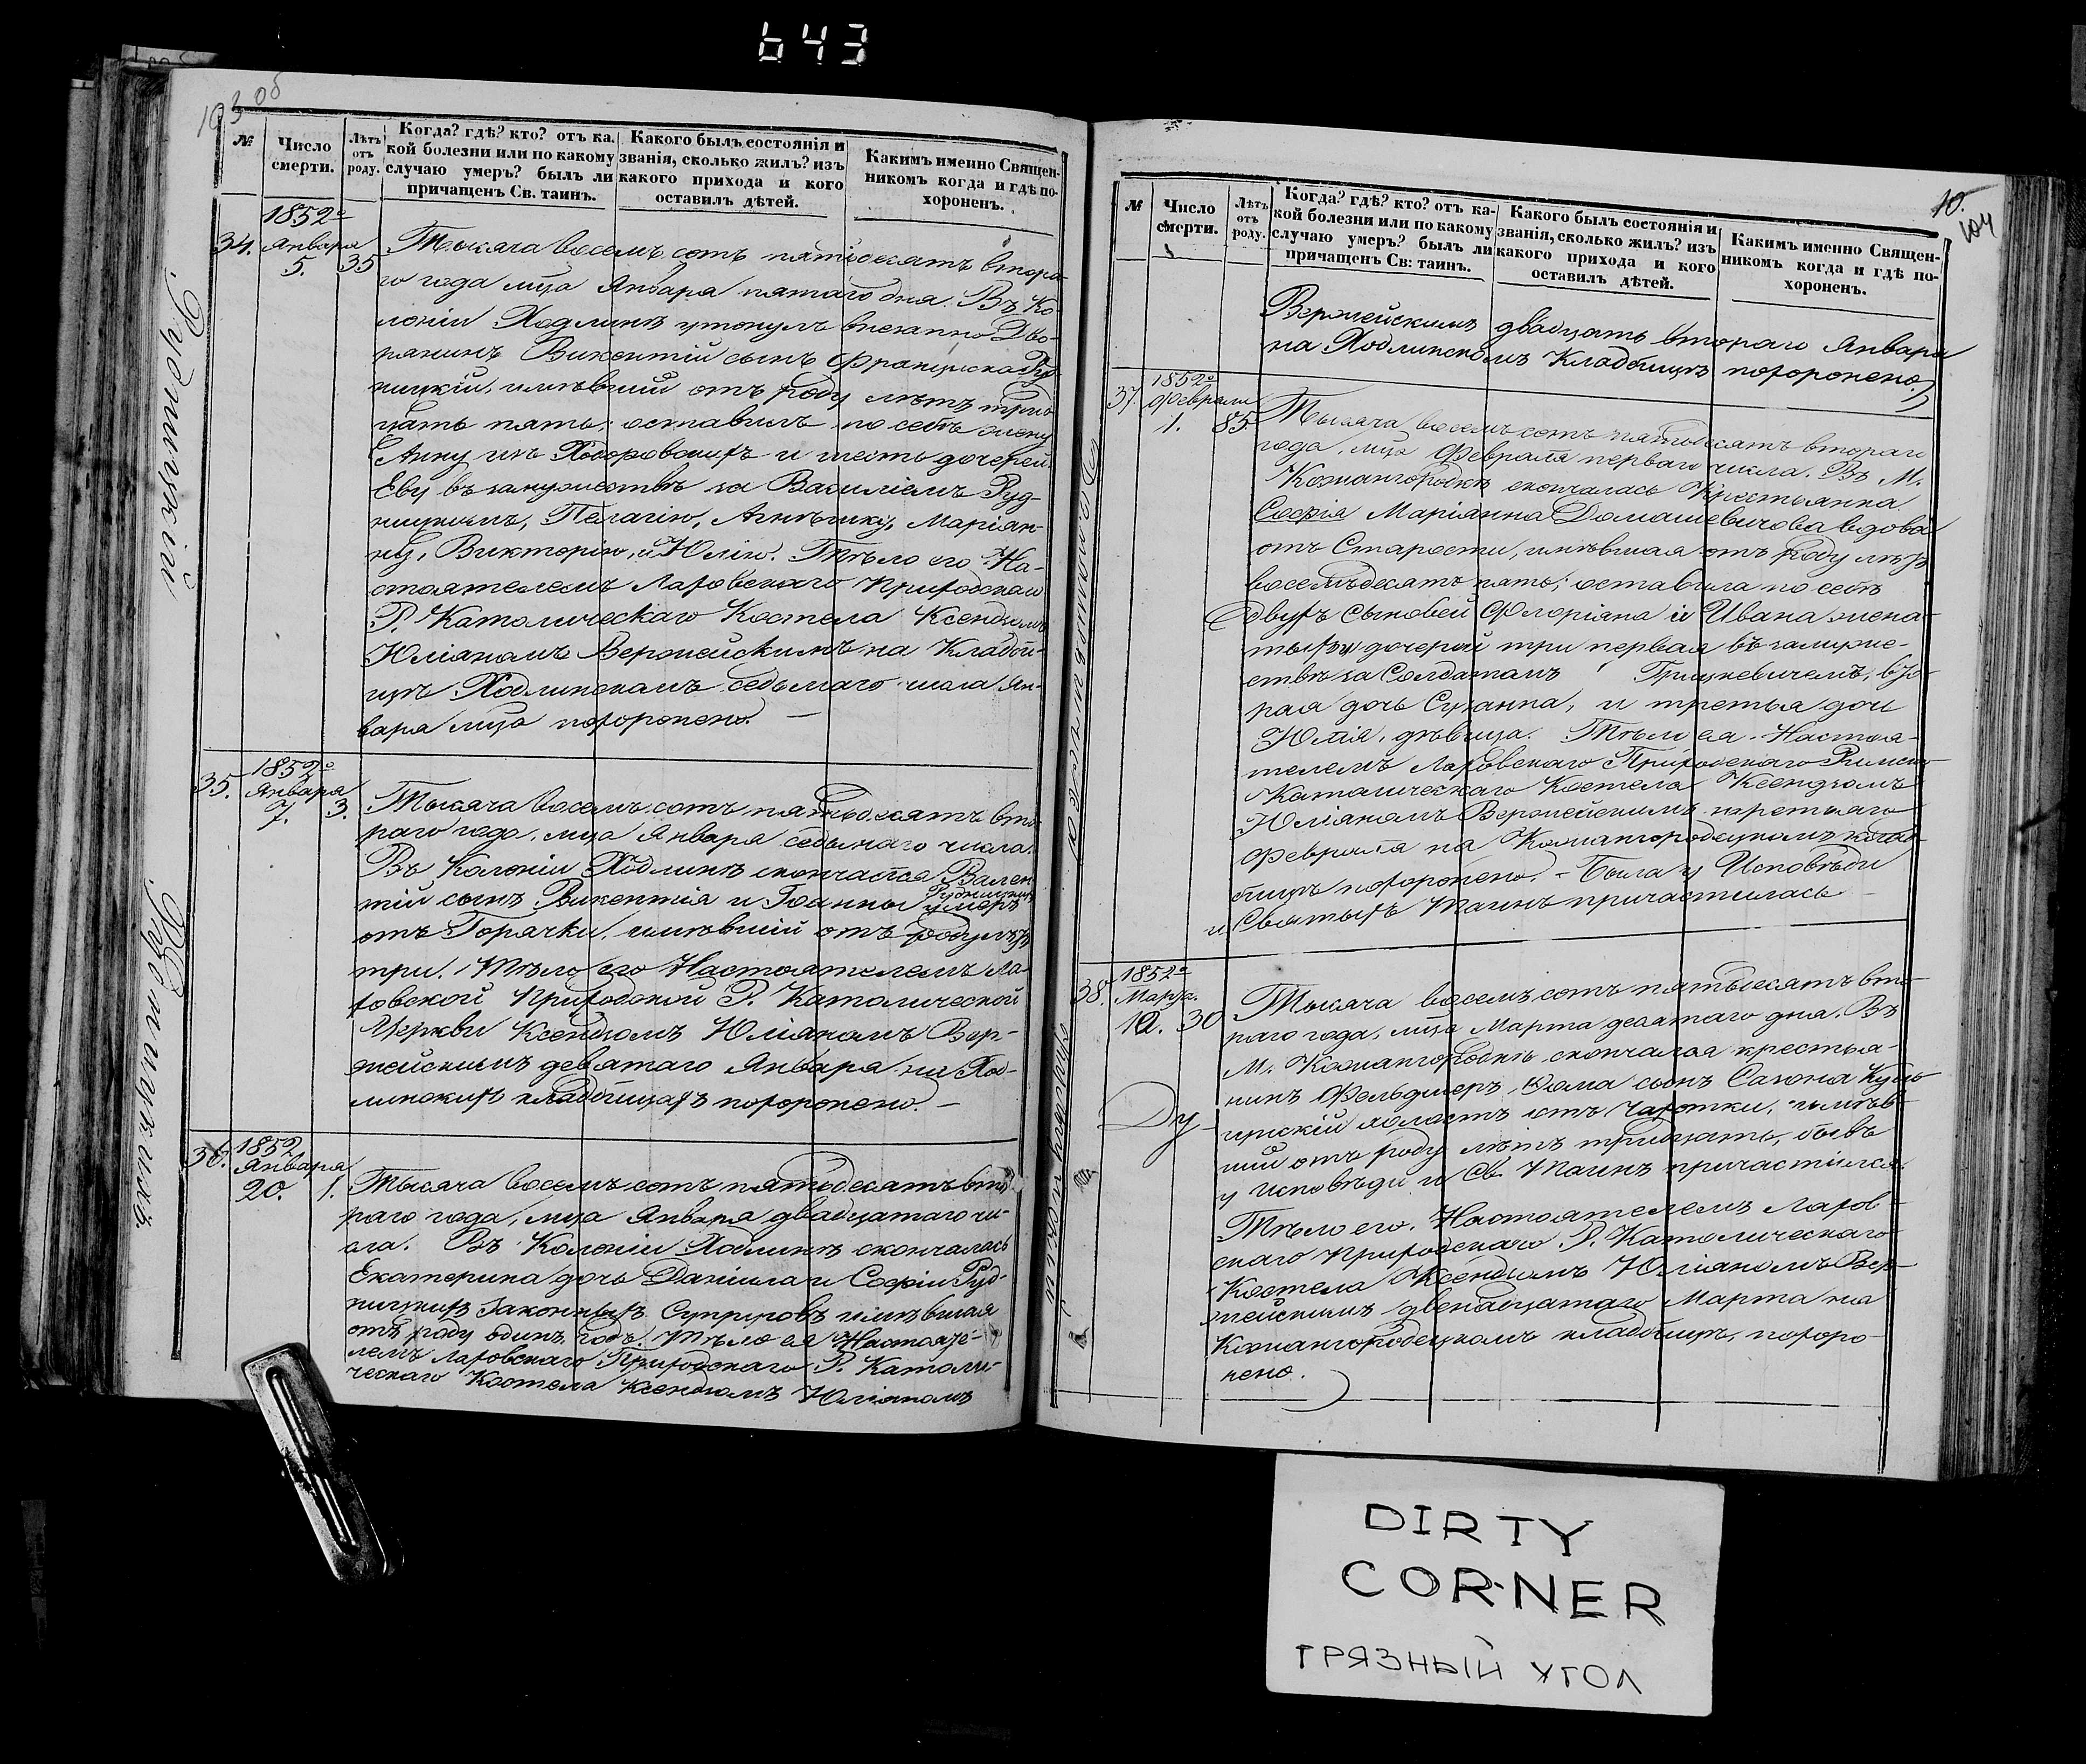 643
103 об
№
Число смерти.
Лѣтъ отъ роду.
Когда? гдѣ? кто? отъ ка-
кой болезни или по какому
случаю умеръ? былъ ли
причащенъ Св. таинъ.
Какого былъ состоянія и
званія, сколько жилъ? изъ
какого прихода и кого
оставилъ дѣтей.
Какимъ именно Священ-
никомъ когда и гдѣ по-
хороненъ.
Рудницкій
34.
1852го
Января
5.
35
Тысяча восемъ сотъ пятдесятъ второ-
го года мца Января пятаго дня. Въ Ко
лоніи Ходлинѣ утонулъ внезапно Дво-
рянинъ Викентій сынъ Франциска Руд
ницкій, имѣвшій отъ роду лѣтъ трид
цать пять; оставилъ по себѣ жену
Анну изъ Ходоровскихъ и шесть дочерей
Еву въ замужествѣ за Василіемъ Руд-
ницкимъ, Пелагію, Агнѣшку, Маріян-
ну, Викторію, и Юлію. Тѣло его На-
стоятелемъ Лаховскаго Приходскаго
Р. Католическаго Костела Ксендзомъ
Юліяномъ Вержейскимъ на Кладби-
щѣ Ходлинскомъ седьмаго числа Ян-
варя мца похоронено. —
35.
1852го
Января
7.
3.
Тысяча восемъ сотъ пятьдесятъ вто
раго года, мца Января седьмаго числа.
Въ Колоніи Ходлинѣ скончался Вален
тій сынъ Викентія и Іоанны Рудницкихъ умеръ
отъ Горячки, имѣвшій отъ роду лѣтъ
три. Тѣло его Настоятелемъ Ла-
ховской Приходской Р. Католической
Церкви Ксендзомъ Юліаномъ Вер-
жейскимъ девятаго Января на Ход-
линскихъ кладбищахъ похоронено. —
36.
1852
Января
20.
1.
Тысяча восемъ сотъ пятьдесятъ вто
раго года, мца Января двадцатаго чи-
сла. Въ Колоніи Ходлинѣ скончалась
Екатерина дочь Даніила и Софіи Руд-
ницкихъ законныхъ Супруговъ имѣвшая
отъ роду одинъ годъ. Тѣло ея Настояте-
лемъ Лаховскаго Приходскаго Р. Католи-
ческаго Костела Ксендзомъ Юліяномъ
10.
104
№
Число смерти.
Лѣтъ отъ роду.
Когда? гдѣ? кто? отъ ка-
кой болезни или по какому
случаю умеръ? былъ ли
причащенъ Св: таинъ.
Какого былъ состоянія и
званія, сколько жилъ? изъ
какого прихода и кого
оставилъ дѣтей.
Какимъ именно Священ-
никомъ когда и гдѣ по-
хороненъ.
Вержейскимъ двадцать втораго Января
на Ходлинскомъ Кладбищѣ похоронено.
37.
1852го
Февраля
1.
85
Тысяча восемъ сотъ пятьдесятъ втораго
года, мца Февраля перваго числа. Въ М.
Кожангородкѣ скончалась Крестьянка
Софія Маріянна Домашевичова вдова
отъ Старости, имѣвшая отъ роду лѣтъ
восемьдесятъ пять; оставила по себѣ
двухъ Сыновей Флоріяна и Ивана жена-
тыхъ дочерей три первая въ замуже-
ствѣ за Солдатомъ Грицкевичемъ, вто-
рая дочь Сузанна, и третья дочь
Юлія, дѣвица. Тѣло ея Настоя-
телемъ Лаховскаго Приходскаго Римско
Католическаго Костела Ксендзомъ
Юліаномъ Вержейскимъ третьяго
Февраля на Кожангородецкомъ клад-
бищѣ похоронено. — Была у Исповѣди
и Святыхъ Таинъ причастилась —
38.
1852го
Марта.
10.
30
Тысяча восемъ сотъ пятьдесятъ вто-
раго года, мца Марта десятаго дня. Въ
М. Кожангородкѣ скончался крестья-
нинъ Фельдшеръ Фома сынъ Сазона
отъ Чахотки, имѣв-
шій отъ роду лѣтъ тридцать, бывъ
у исповѣди и Св. Таинъ причастился.
Тѣло его Настоятелемъ Лахов-
скаго Приходскаго Р. Католическаго
Костела Ксендзомъ Юліяномъ Вер-
жейскимъ двенадцатаго Марта на
Кожангородецкомъ кладбищѣ, похоро-
нено.
DIRTY
CORNER
ГРЯЗНЫЙ УГОЛ